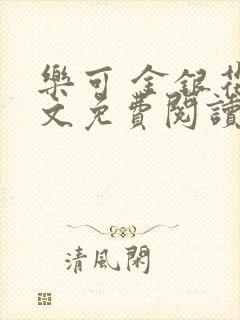 樂可 金銀花
文免費閱讀
清風閑